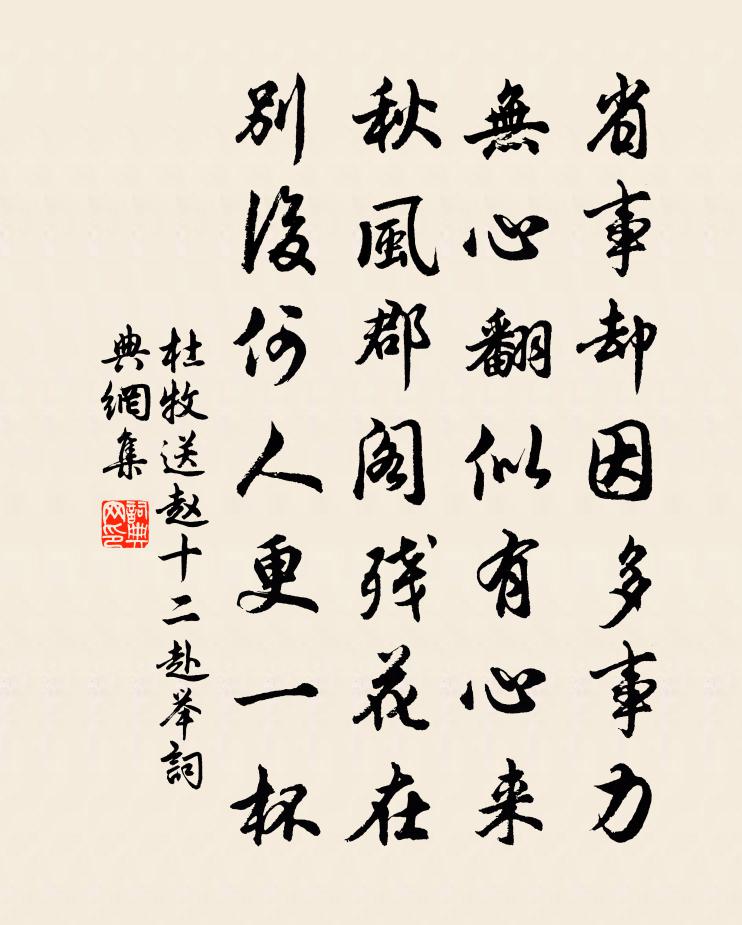 省事却因多事力
無心翻似有心来
秋風郡阁残花在
别後何人更一杯
杜牧送赵十二赴举詞
典網集
詞典
网印